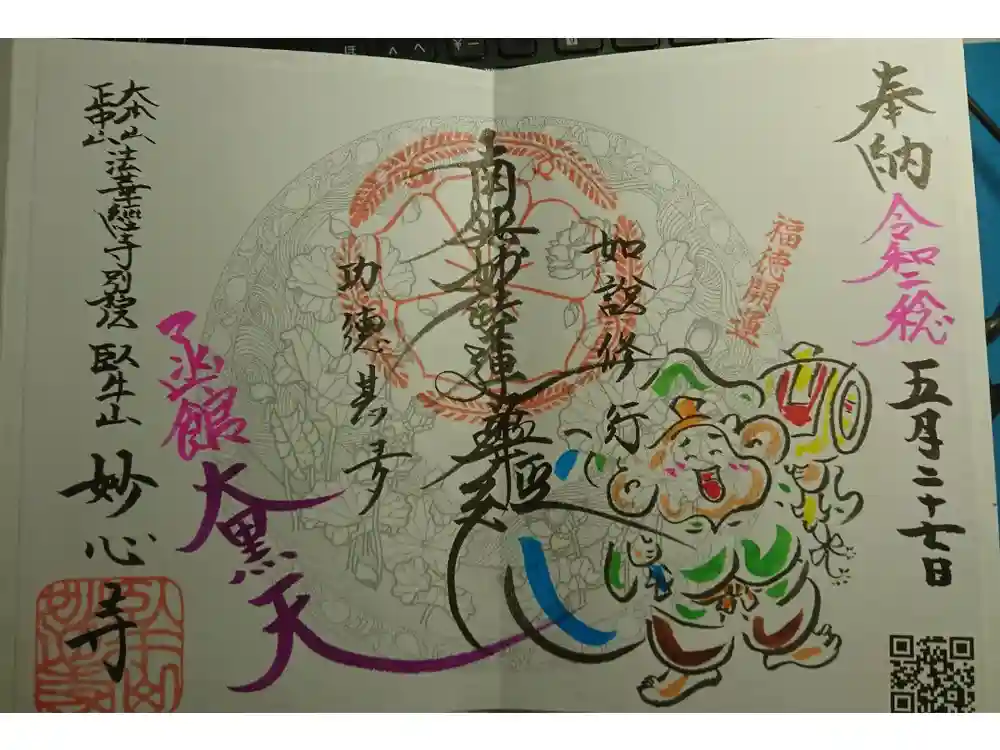 奉納
令和二稔
五月二十七日
福徳開運
如説修行
南無妙法蓮華経
功徳甚多
函館
大黒天
大本山
正中山
法華經寺別院
臥牛山
妙心寺
ほ
へ
￥